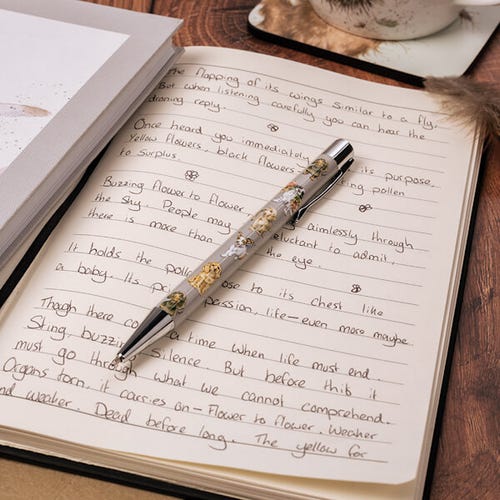 The flapping of its wings similar to a fly.
But when listening carefully you can hear the
droning reply.
Once heard you immediately its purpose,
Yellow flowers, black flowers ring pollen
to surplus.
Buzzing flower to flower aimlessly through
the sky. People may reluctant to admit.
there is more than the eye.
It holds the poll ose to its chest like
a baby. Its pr passion, life-even more maybe.
Though there co a time when life must end.
Sting, buzzing silence. But before this it
must go through what we cannot comprehend.
Organs torn, it carries on - flower to flower. Weaker
and weaker. Dead before long. The yellow for